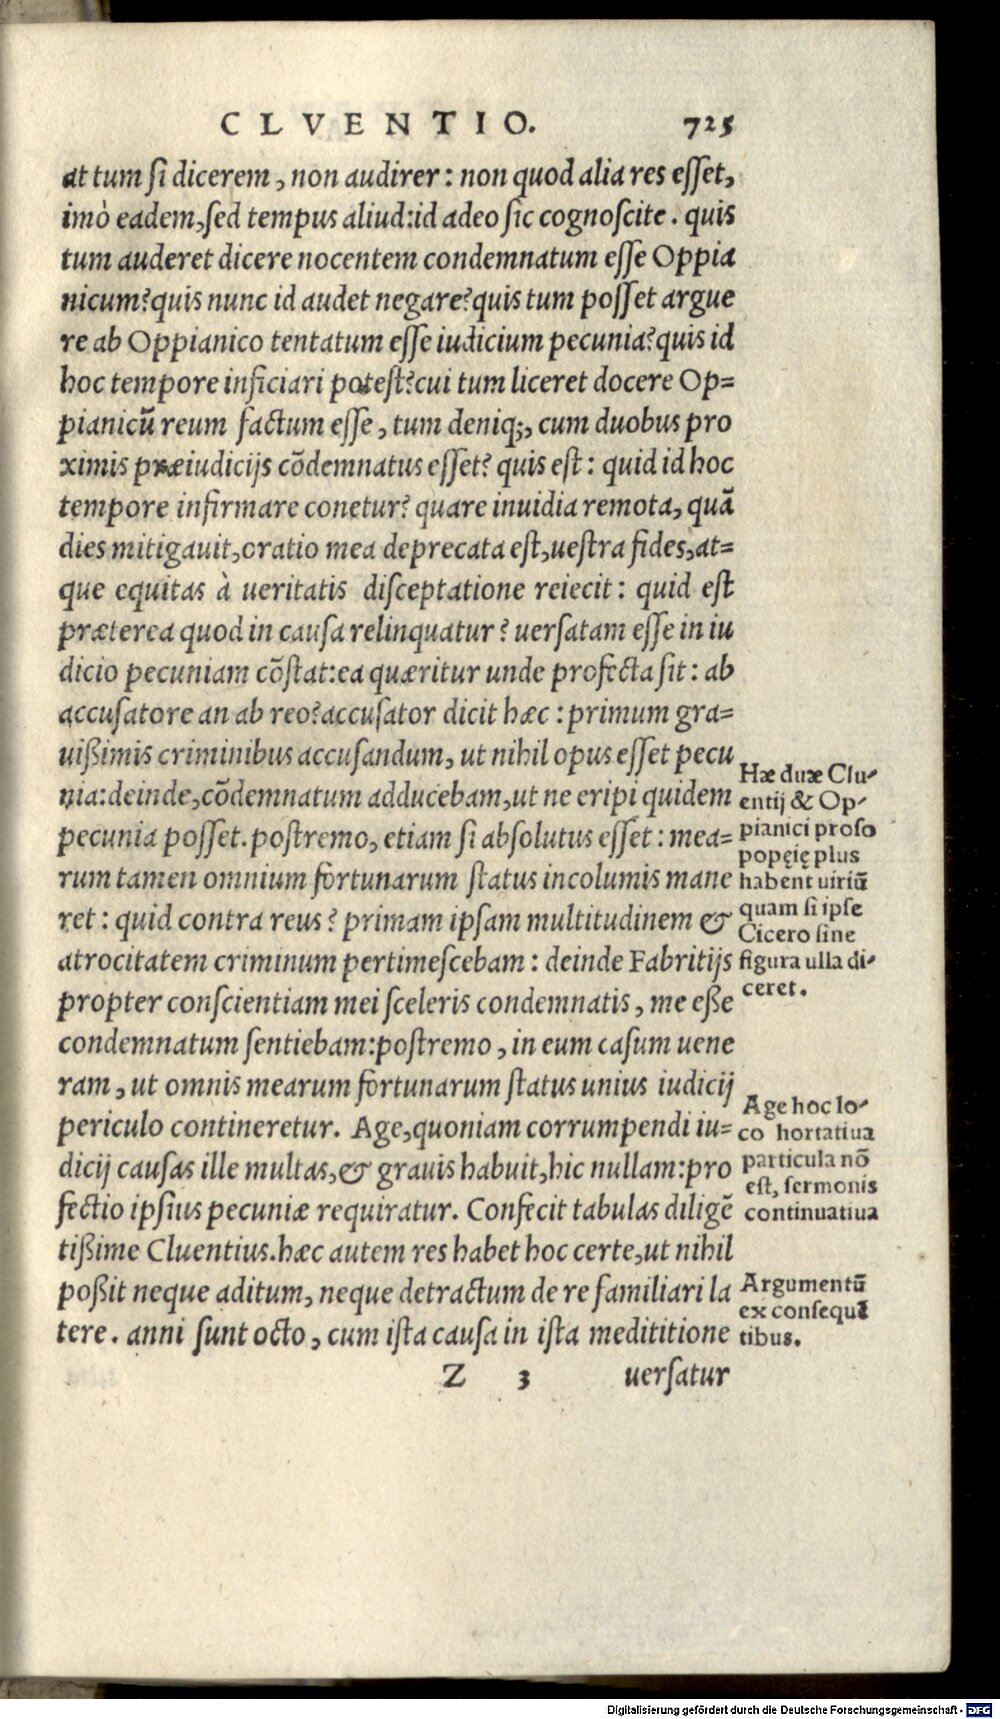 CLVENTIO. 725
at tum si dicerem, non audirer: non quod alia res esset,
imò eadem, sed tempus aliud: id adeo sic cognoscite. quis
tum auderet dicere nocentem condemnatum esse Oppia
nicum? quis nunc id audet negare? quis tum posset argue
re ab Oppianico tentatum esse iudicium pecunia? quis id
hoc tempore inficiari potest? cui tum liceret docere Op=
pianicū reum factum esse, tum deniq;, cum duobus pro
ximis præiudicijs cōdemnatus esset? quis est: quid id hoc
tempore infirmare conetur? quare inuidia remota, quā
dies mitigauit, oratio mea deprecata est, uestra fides, at=
que equitas à ueritatis disceptatione reiecit: quid est
præterea quod in causa relinquatur? uersatam esse in iu
dicio pecuniam cōstat: ea quæritur unde profecta sit: ab
accusatore an ab reo? accusator dicit hæc: primum gra=
uißimis criminibus accusandum, ut nihil opus esset pecu
nia: deinde, cōdemnatum adducebam, ut ne eripi quidem
pecunia posset. postremo, etiam si absolutus esset: mea=
rum tamen omnium fortunarum status incolumis mane
ret: quid contra reus? primam ipsam multitudinem &
atrocitatem criminum pertimescebam: deinde Fabritijs
propter conscientiam mei sceleris condemnatis, me eße
condemnatum sentiebam: postremo, in eum casum uene
ram, ut omnis mearum fortunarum status unius iudicij
periculo contineretur. Age, quoniam corrumpendi iu=
dicij causas ille multas, & grauis habuit, hic nullam: pro
fectio ipsius pecuniæ requiratur. Confecit tabulas diligē
tißime Cluentius. hæc autem res habet hoc certe, ut nihil
poßit neque aditum, neque detractum de re familiari la
tere. anni sunt octo, cum ista causa in ista medititione
Z 3 uersatur
Hæ duæ Clu-
entij & Op-
pianici proso
popęię plus
habent uiriū
quam si ipse
Cicero sine
figura ulla di-
ceret.
Age hoc lo-
co hortatiua
particula nō
est, sermonis
continuatiua
Argumentū
ex consequē
tibus.
Digitalisierung gefördert durch die Deutsche Forschungsgemeinschaft - DFG